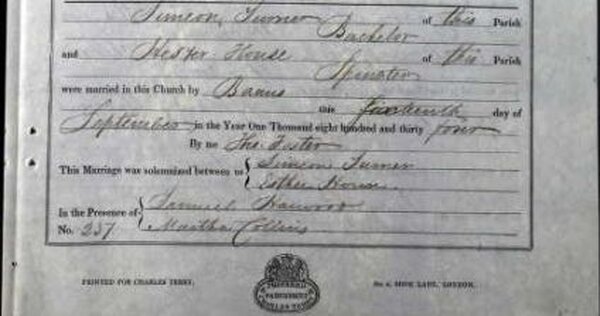 Simeon Turner of this Parish
Bachelor
and Hester House of this Parish
Spinster
were married in this Church by Banns
this fourteenth day of
September in the Year One Thousand eight hundred and thirty four
By me Thos Foster
This Marriage was solemnized between us { Simeon Turner
Esther House
In the Presence of { Samuel Harwood
Martha Collins
No. 237
PRINTED FOR CHARLES TERRY, LONDON.